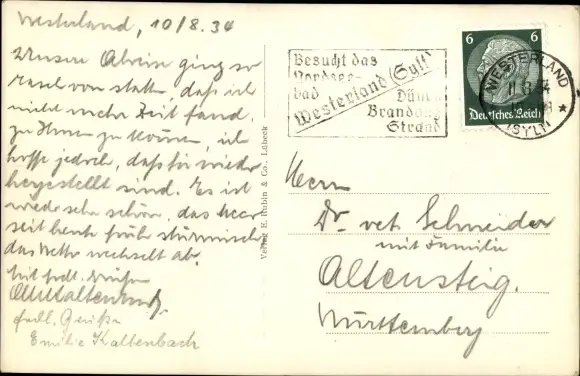 Westerland, 10/8.34
Unsere Abreise ging so
rasch von statten, daß ich
nicht mehr Zeit fand,
zu Ihnen zu kommen, ich
hoffe jedoch, daß Sie wieder
hergestellt sind. Es ist
wieder sehr schön, das Meer
seit heute früh stürmisch
das Wetter wechselt ab.
Mit frdl. Grüßen
frdl. Grüße
Emilie Kaltenbach
Verlag E. Rubin & Co., Lübeck
Besucht das
Nordsee-
bad
Westerland (Sylt)
Dünen
Brandung
Strand
6 6
Deutsches Reich
WESTERLAND
(SYLT)
Herrn
Dr. vet. Schneider
mit Familie
Altensteig.
Württemberg